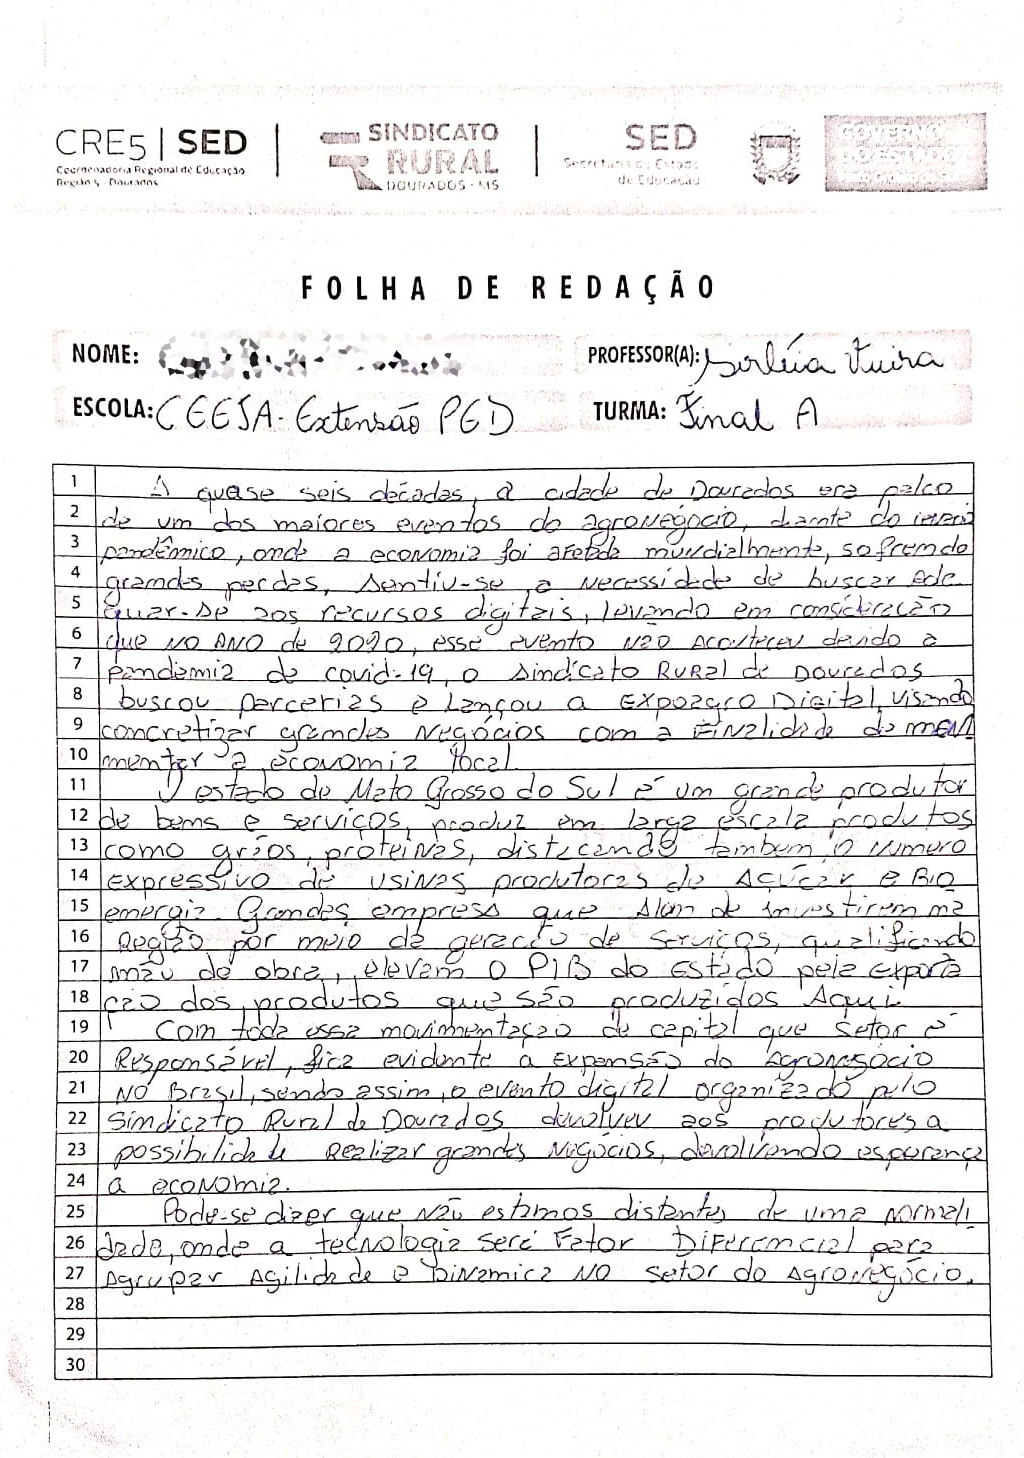 CRE5 | SED
Coordenadoria Regional de Educação
Região 5 - Dourados
SINDICATO
RURAL
DOURADOS - MS
SED
Secretaria de Estado
de Educação
GOVERNO
DO ESTADO
FOLHA DE REDAÇÃO
NOME:
PROFESSOR(A): Sirléia Vieira
ESCOLA: CEEJA - Extensão PED
TURMA: Final A
1 A quase seis décadas, a cidade de Dourados era palco
2 de um dos maiores eventos do agronegócio, diante do cenario
3 pandêmico, onde a economia foi afetada mundialmente, sofrendo
4 grandes perdas, sentiu-se a necessidade de buscar ade
5 quar-se aos recursos digitais, levando em consideração
6 que no ano de 2020, esse evento não aconteceu devido a
7 pandemia de covid-19, o Sindicato Rural de Dourados
8 buscou parcerias e lançou a Expoagro Digital, visando
9 concretizar grandes negócios com a finalidade de
10 mentar a economia local.
11 O estado de Mato Grosso do Sul é um grande produtor
12 de bens e serviços, produz em larga escala produtos
13 como grãos, proteinas, distacando tambem o numero
14 expressivo de usinas produtoras de Açúcar e Bio
15 energia. Grandes empresa que Além de investirem na
16 Região por meio da geração de serviços, qualificando
17 mão de obra, elevam o PIB do Estado pela exporta
18 ção dos produtos que são produzidos Aqui.
19 Com toda essa movimentação de capital que setor é
20 Responsável, fica evidente a expansão do Agronegócio
21 no Brasil, sendo assim, o evento digital organizado pelo
22 Sindicato Rural de Dourados devolveu aos produtores a
23 possibilidade Realizar grandes Negócios, devolvendo esperança
24 a economia.
25 Pode-se dizer que não estamos distantes de uma normali
26 dade, onde a tecnologia será Fator Diferencial para
27 Agrupar Agilidade e Dinamica no setor do Agronegócio.
28
29
30